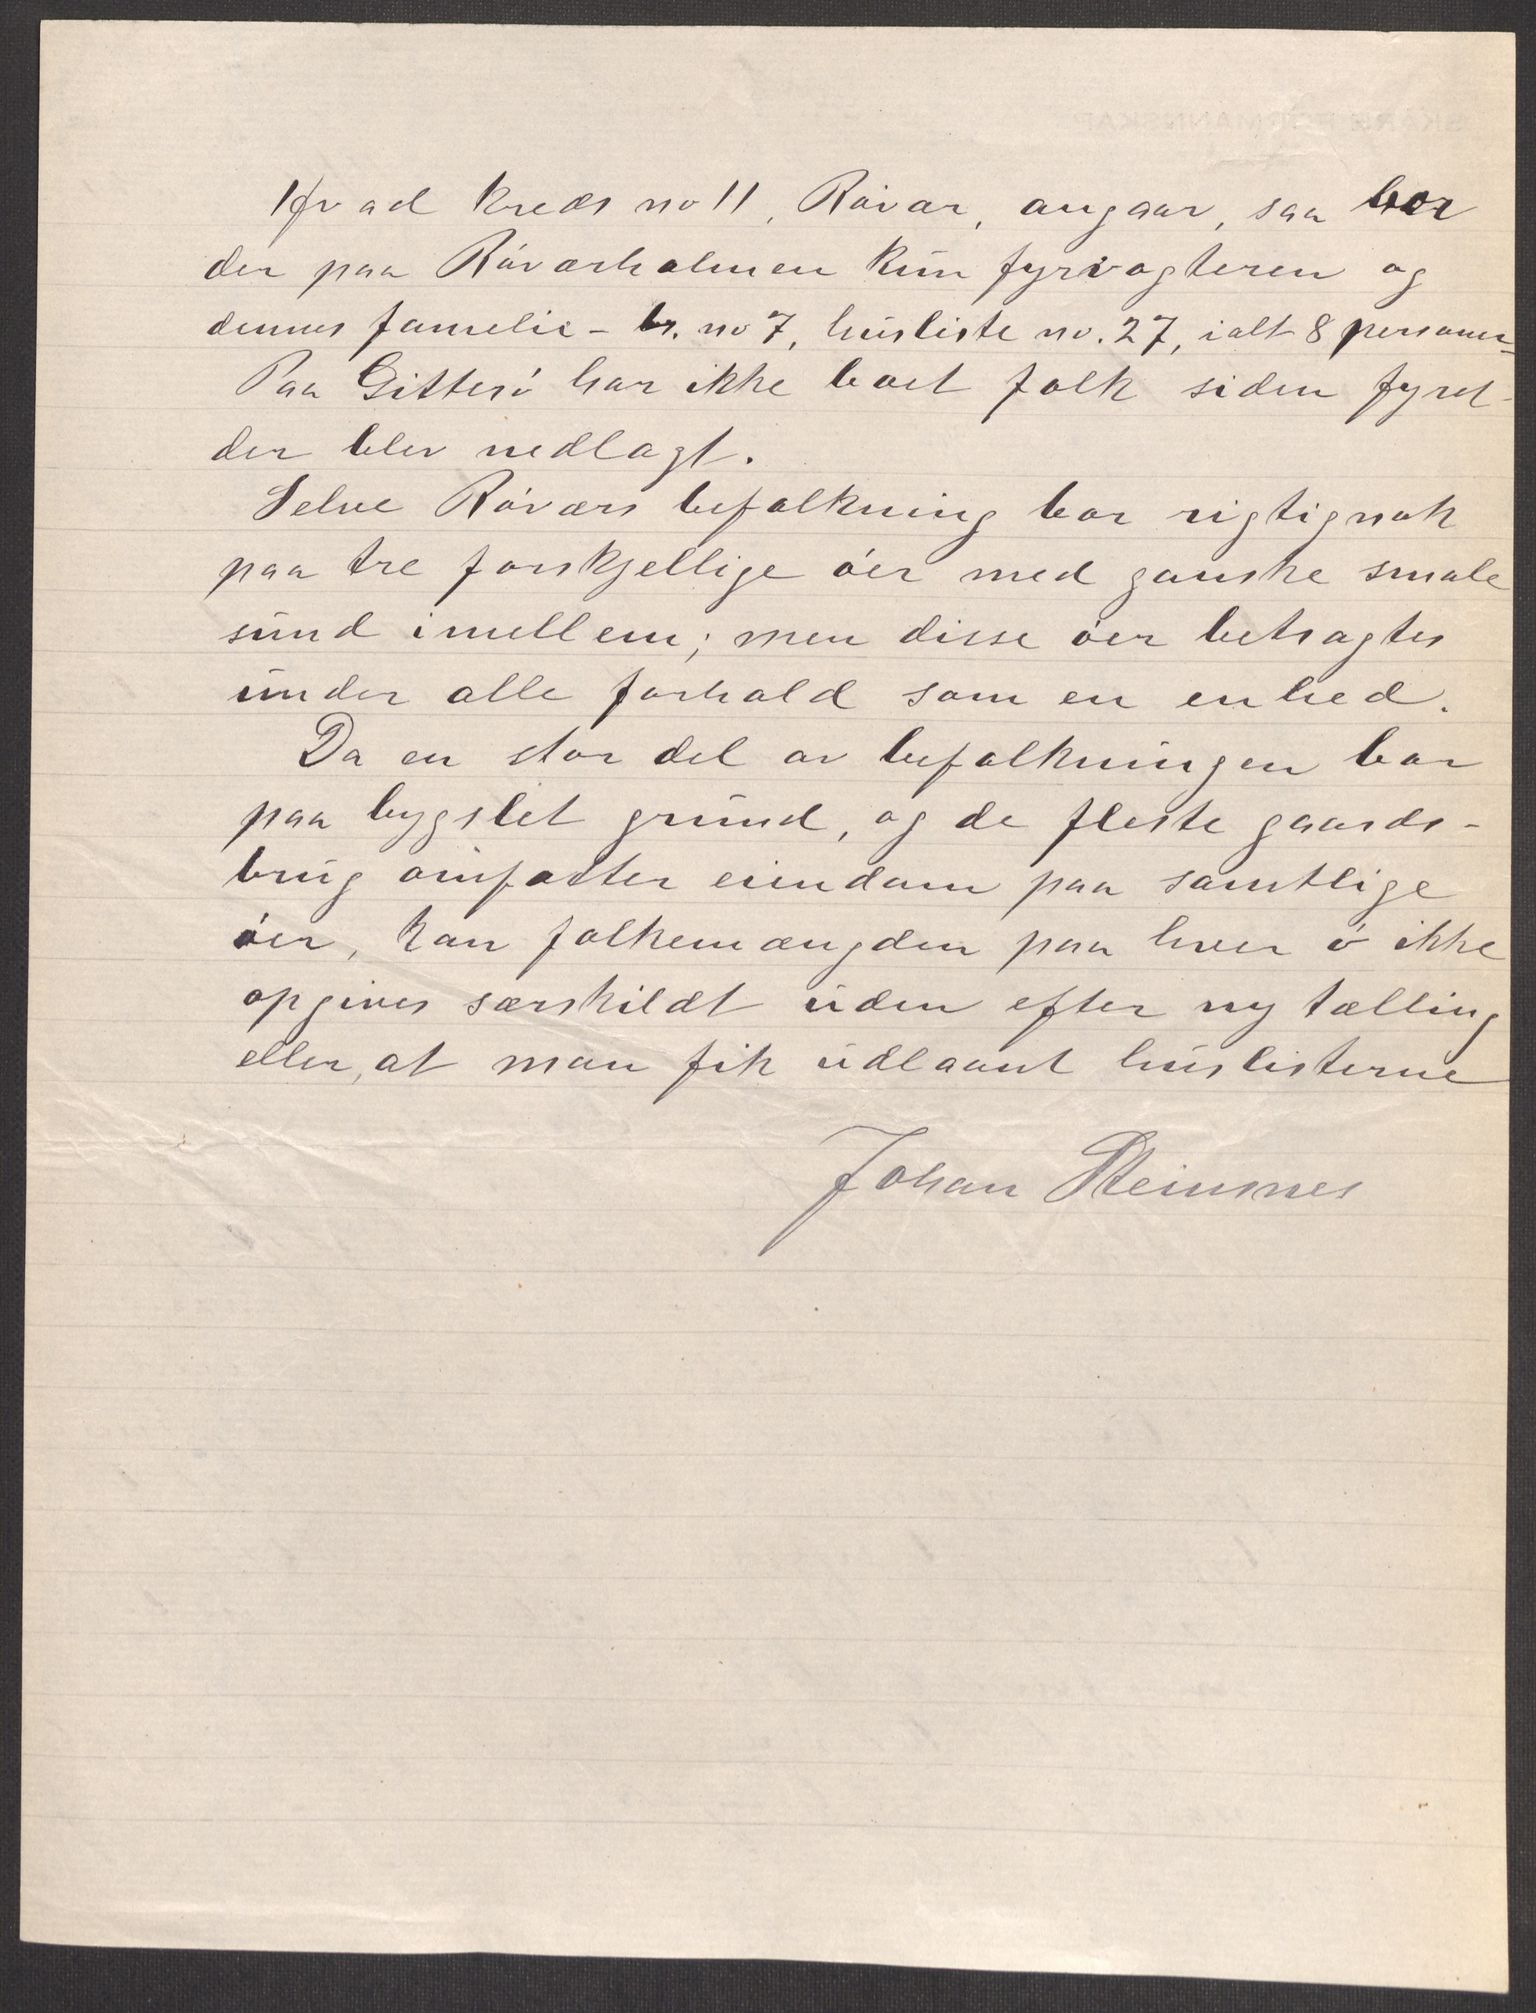 Hvad kreds no 11, Røvær, angaar, saa bor
der paa Røværholmen kun fyrvogteren og
dennes familie – br. no 7, husliste no. 27, ialt 8 personer –
Paa Gitterø har ikke boet folk siden fyret
der blev nedlagt.
Selve Røværs befolkning bor rigtignok
paa tre forskjellige øer med ganske smale
sund imellem; men disse øer betragtes
under alle forhold som en enhed.
Da en stor del av befolkningen bor
paa bygslet grund, og de fleste gaards-
brug omfatter eiendom paa samtlige
øer, kan folkemængden paa hver ø ikke
opgives særskildt uden efter ny tælling
eller, at man fik udlaant huslisterne
Johan Steinsnes